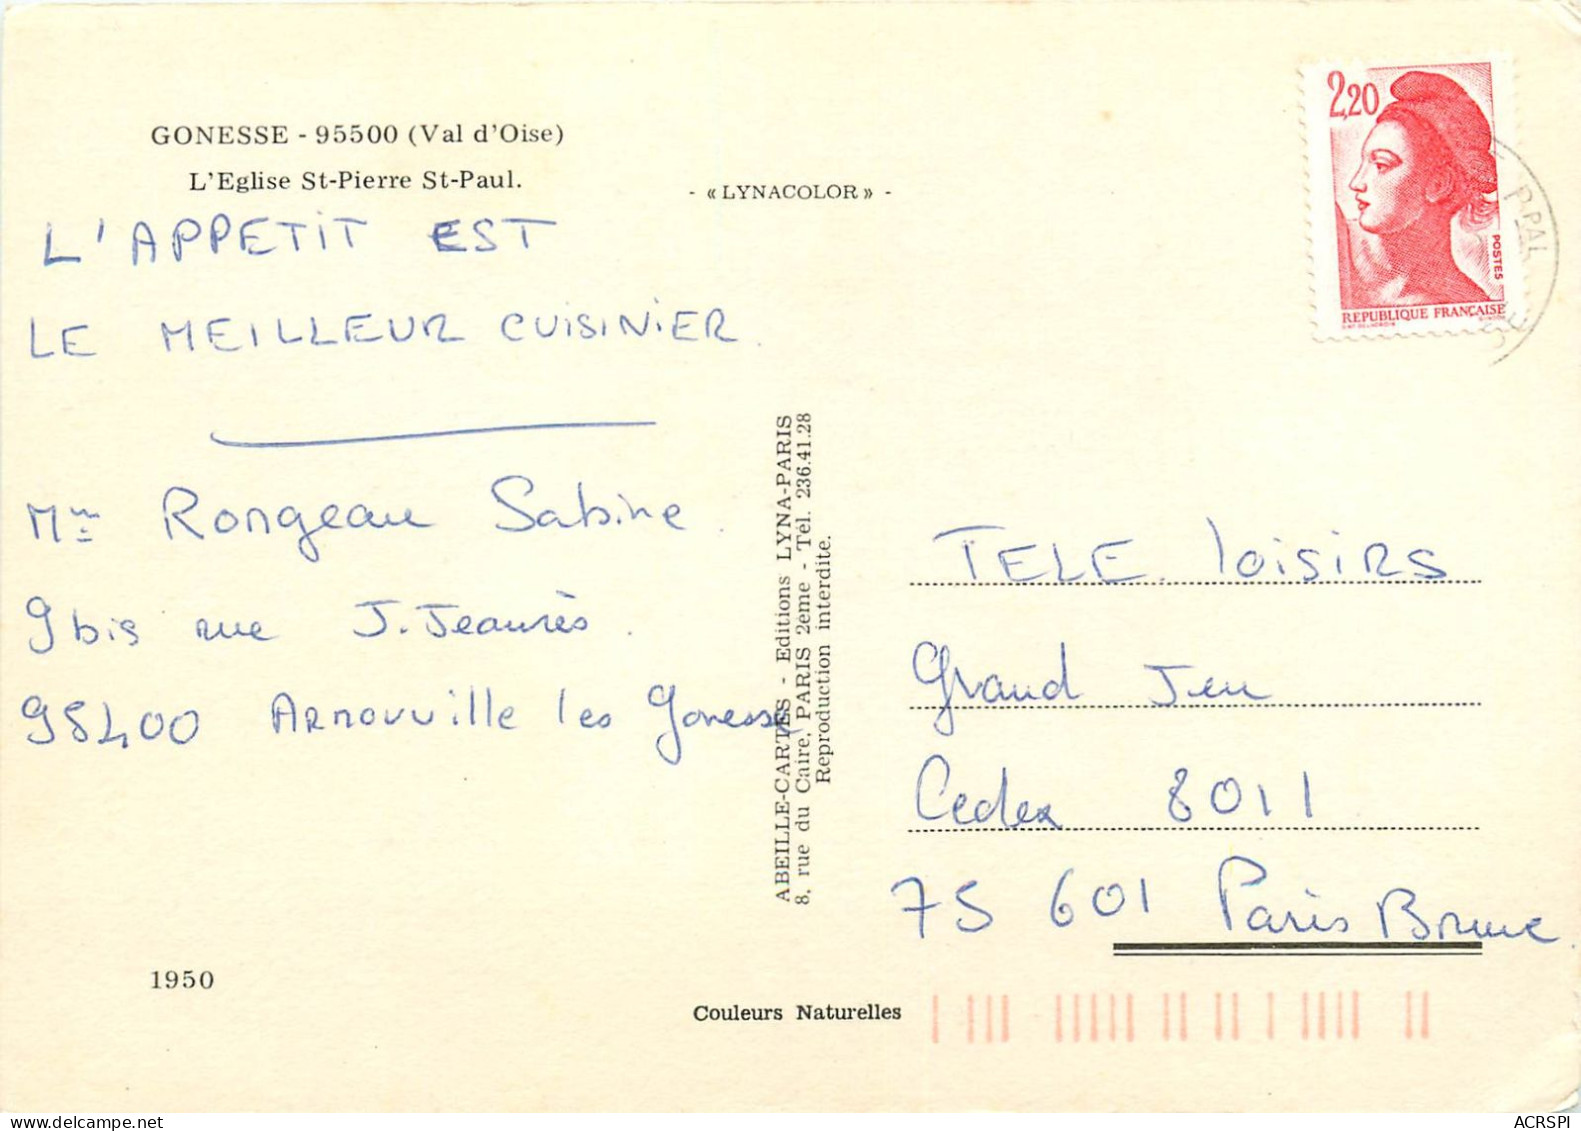 GONESSE - 95500 (Val d'Oise)
L'Eglise St-Pierre St-Paul.
- « LYNACOLOR » -
L'APPETIT EST
LE MEILLEUR CUISINIER.
Mme Rongeau Sabine.
9 bis rue J. Jeaurès.
95400 Arnouville les Gonesse
1950
ABEILLE-CARTES - Editions LYNA-PARIS
8, rue du Caire, PARIS 2eme - Tél. 236.41.28
Reproduction interdite.
Couleurs Naturelles
2,20
POSTES
REPUBLIQUE FRANÇAISE
PPAL
TELE. loisirs
Grand Jeu
Cedex 8011
75 601 Paris Brune
delcampe.net
ACRSPI